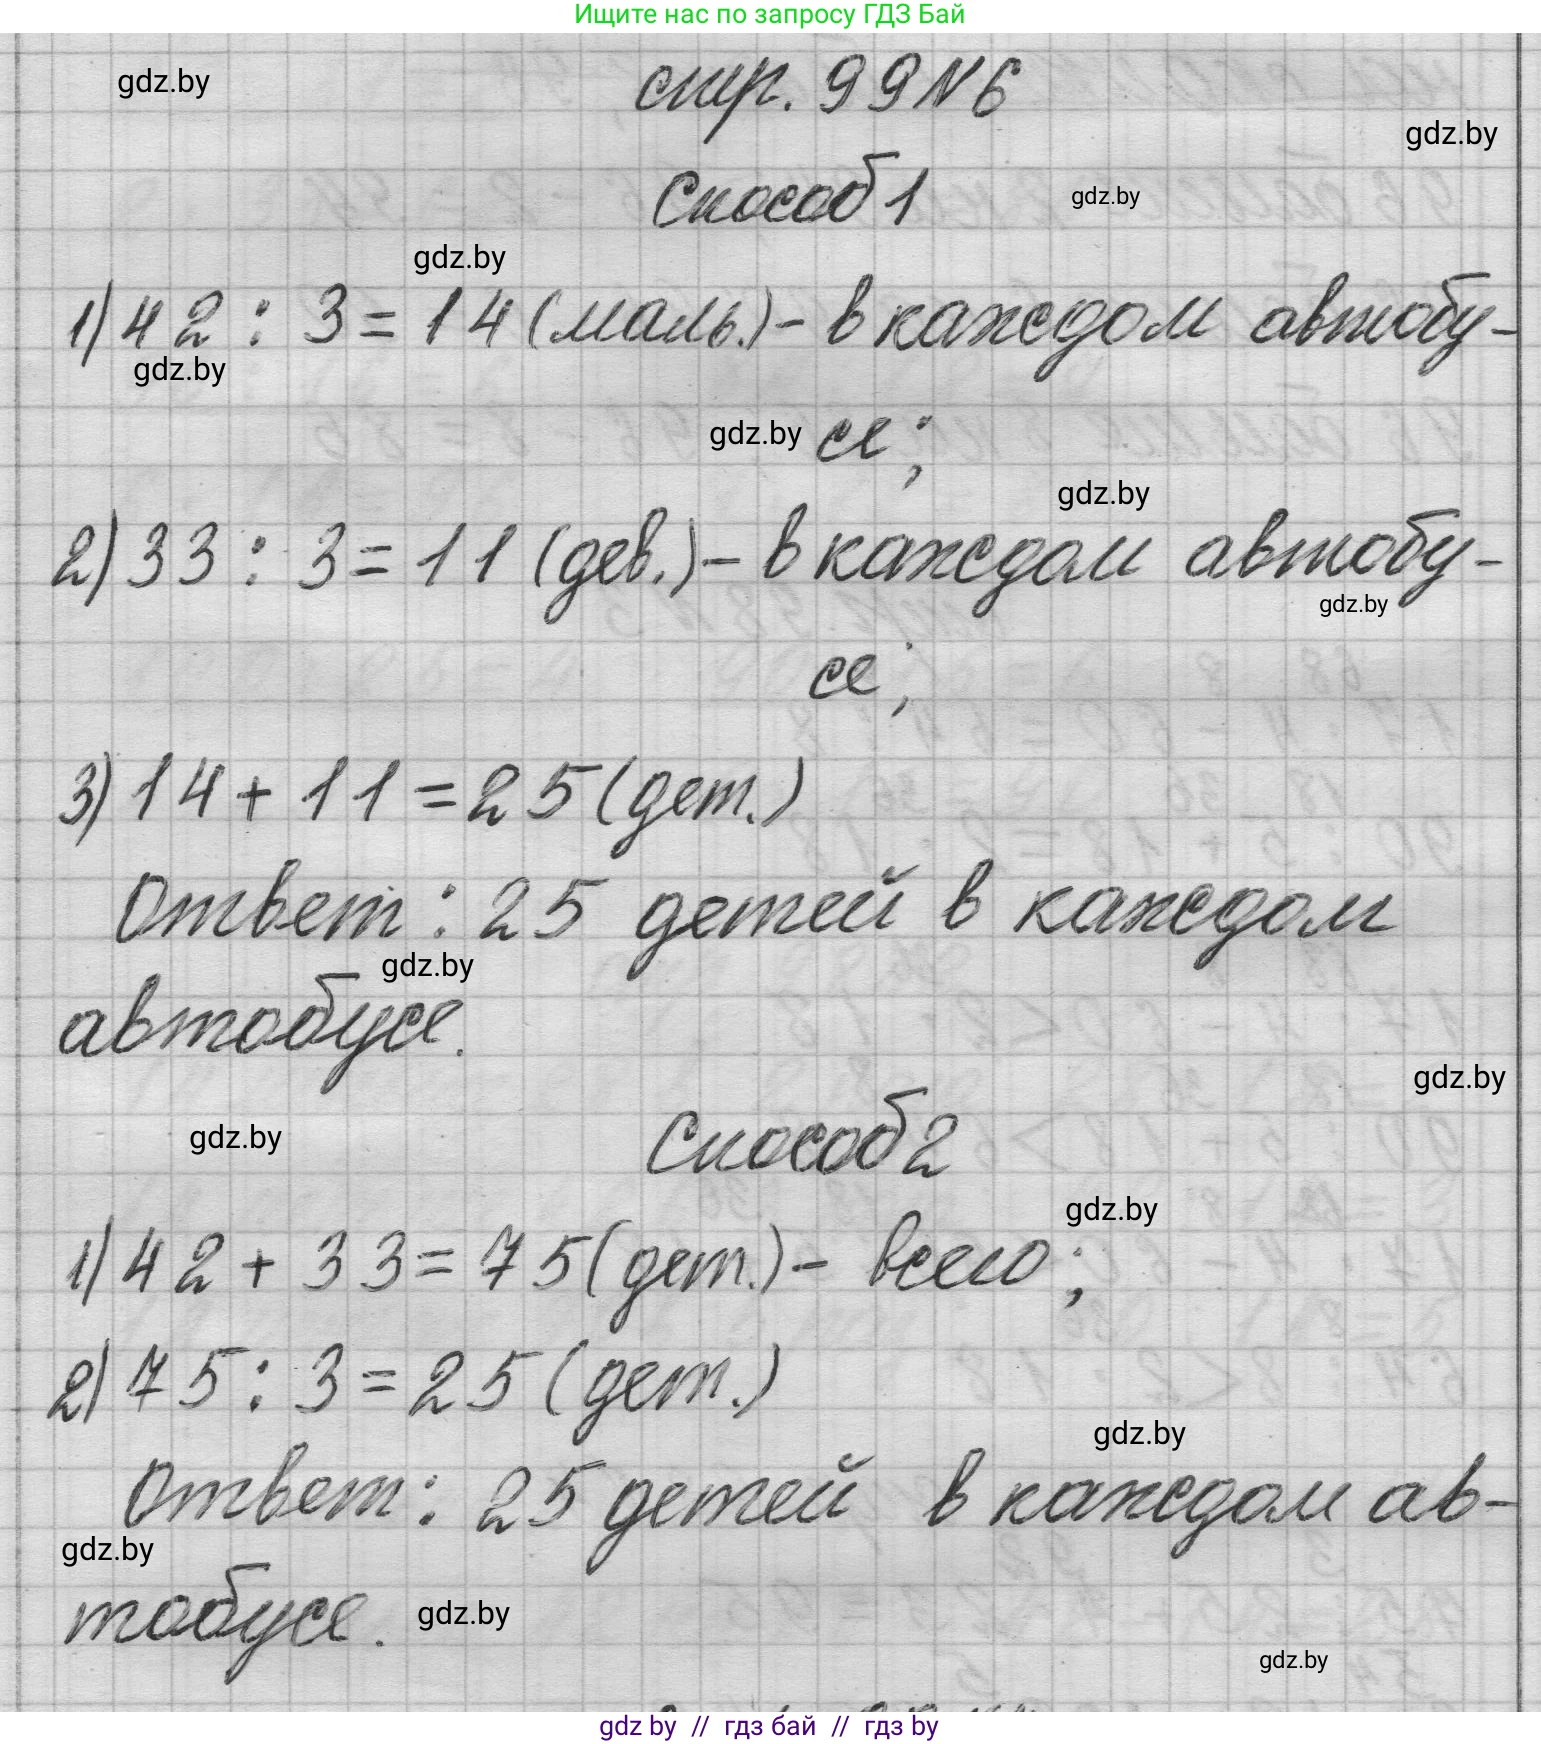 Ищите нас по запросу ГДЗ Бай
gdz.by
стр. 99 N 6
gdz.by
Способ 1
gdz.by
gdz.by
1) 42 : 3 = 14 (маль.) - в каждом автобу-
gdz.by
gdz.by
се;
gdz.by
2) 33 : 3 = 11 (дев.) - в каждом автобу-
gdz.by
се;
3) 14 + 11 = 25 (дет.)
Ответ: 25 детей в каждом
gdz.by
автобусе.
gdz.by
gdz.by
Способ 2
gdz.by
1) 42 + 33 = 75 (дет.) - всего;
2) 75 : 3 = 25 (дет.)
gdz.by
Ответ: 25 детей в каждом ав-
gdz.by
тобусе.
gdz.by
gdz.by
gdz by // гдз бай // гдз by